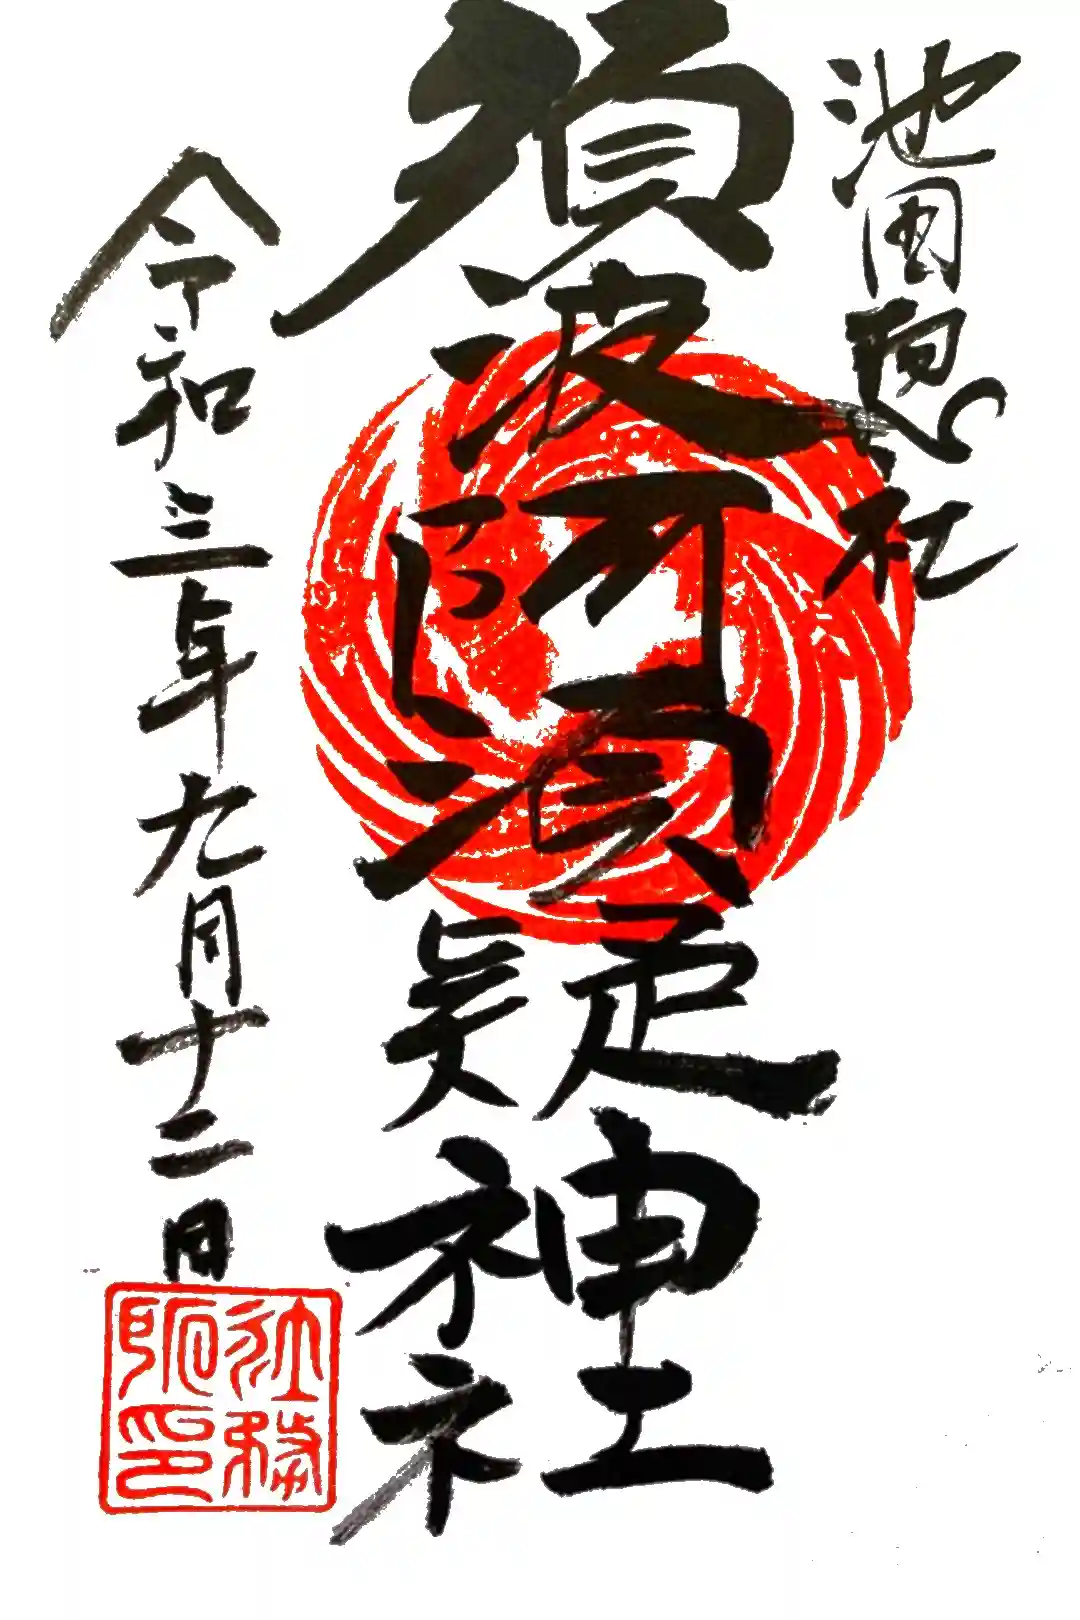 池田惣社
須波阿湏疑神社
令和三年九月十二日
社務
所印